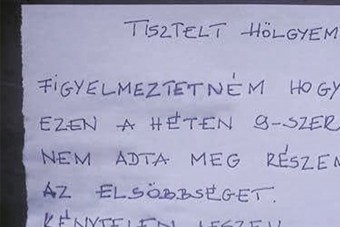 TISZTELT HÖLGYEM
FIGYELMEZTETNÉM HOGY
EZEN A HÉTEN 9-SZER
NEM ADTA MEG RÉSZEM
AZ ELSÖBBSÉGET.
KÉNYTELEN LESZEN